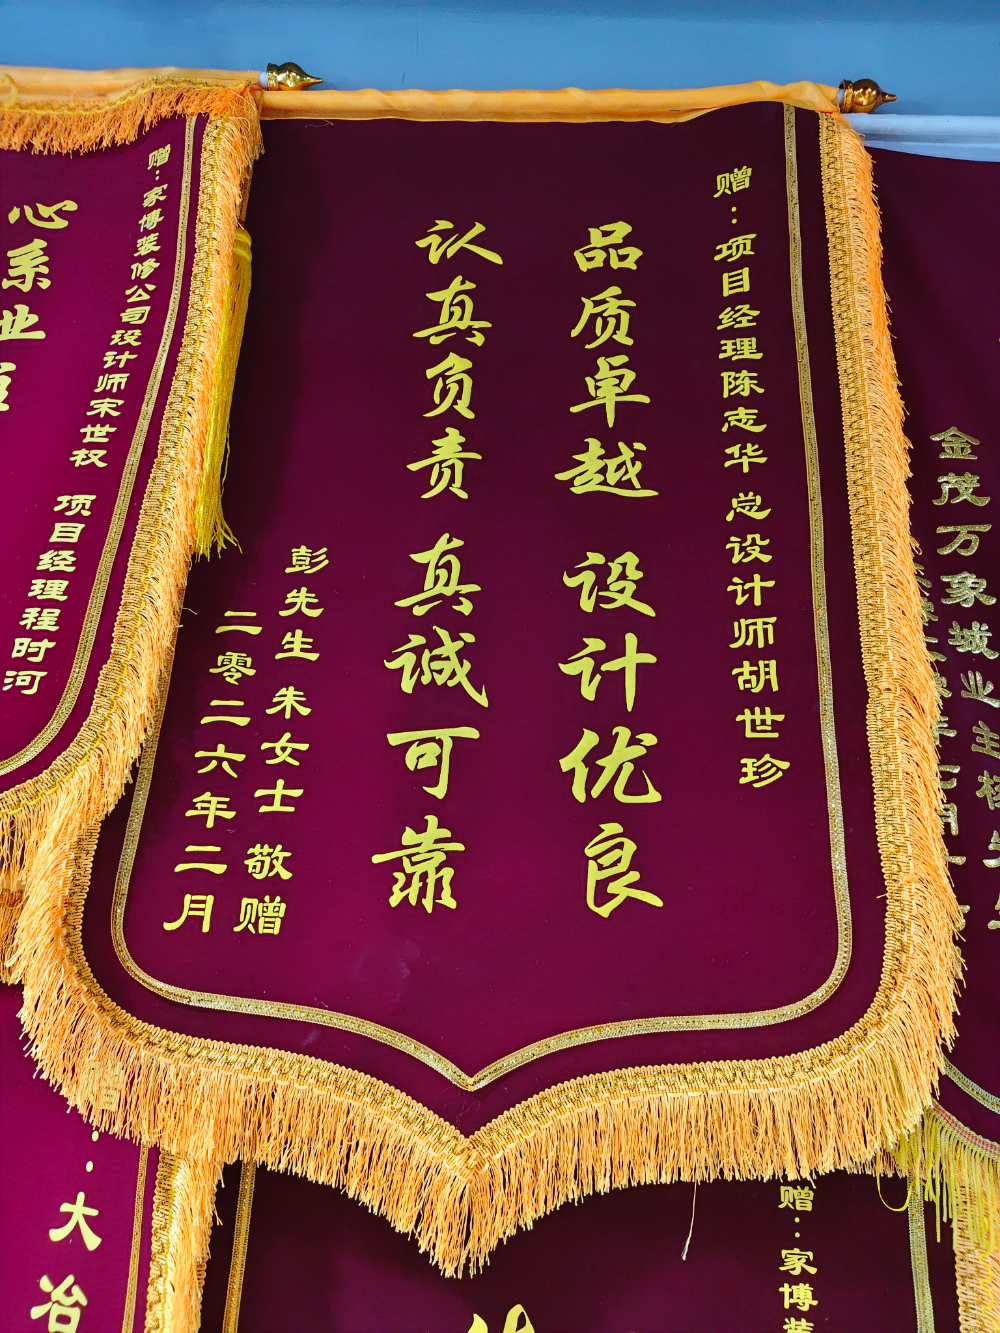 赠：项目经理陈志华 总设计师胡世珍
品质卓越 设计优良
认真负责 真诚可靠
彭先生 朱女士 敬赠
二零二六年二月
赠：家博装修公司设计师宋世权 项目经理程时河
心系业
金茂万象城业主
大冶
赠：家博装